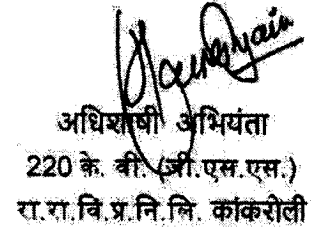 अधिशाषी अभियंता
220 के. वी. (जी.एस.एस.)
रा.रा.वि.प्र.नि.लि. कांकरोली